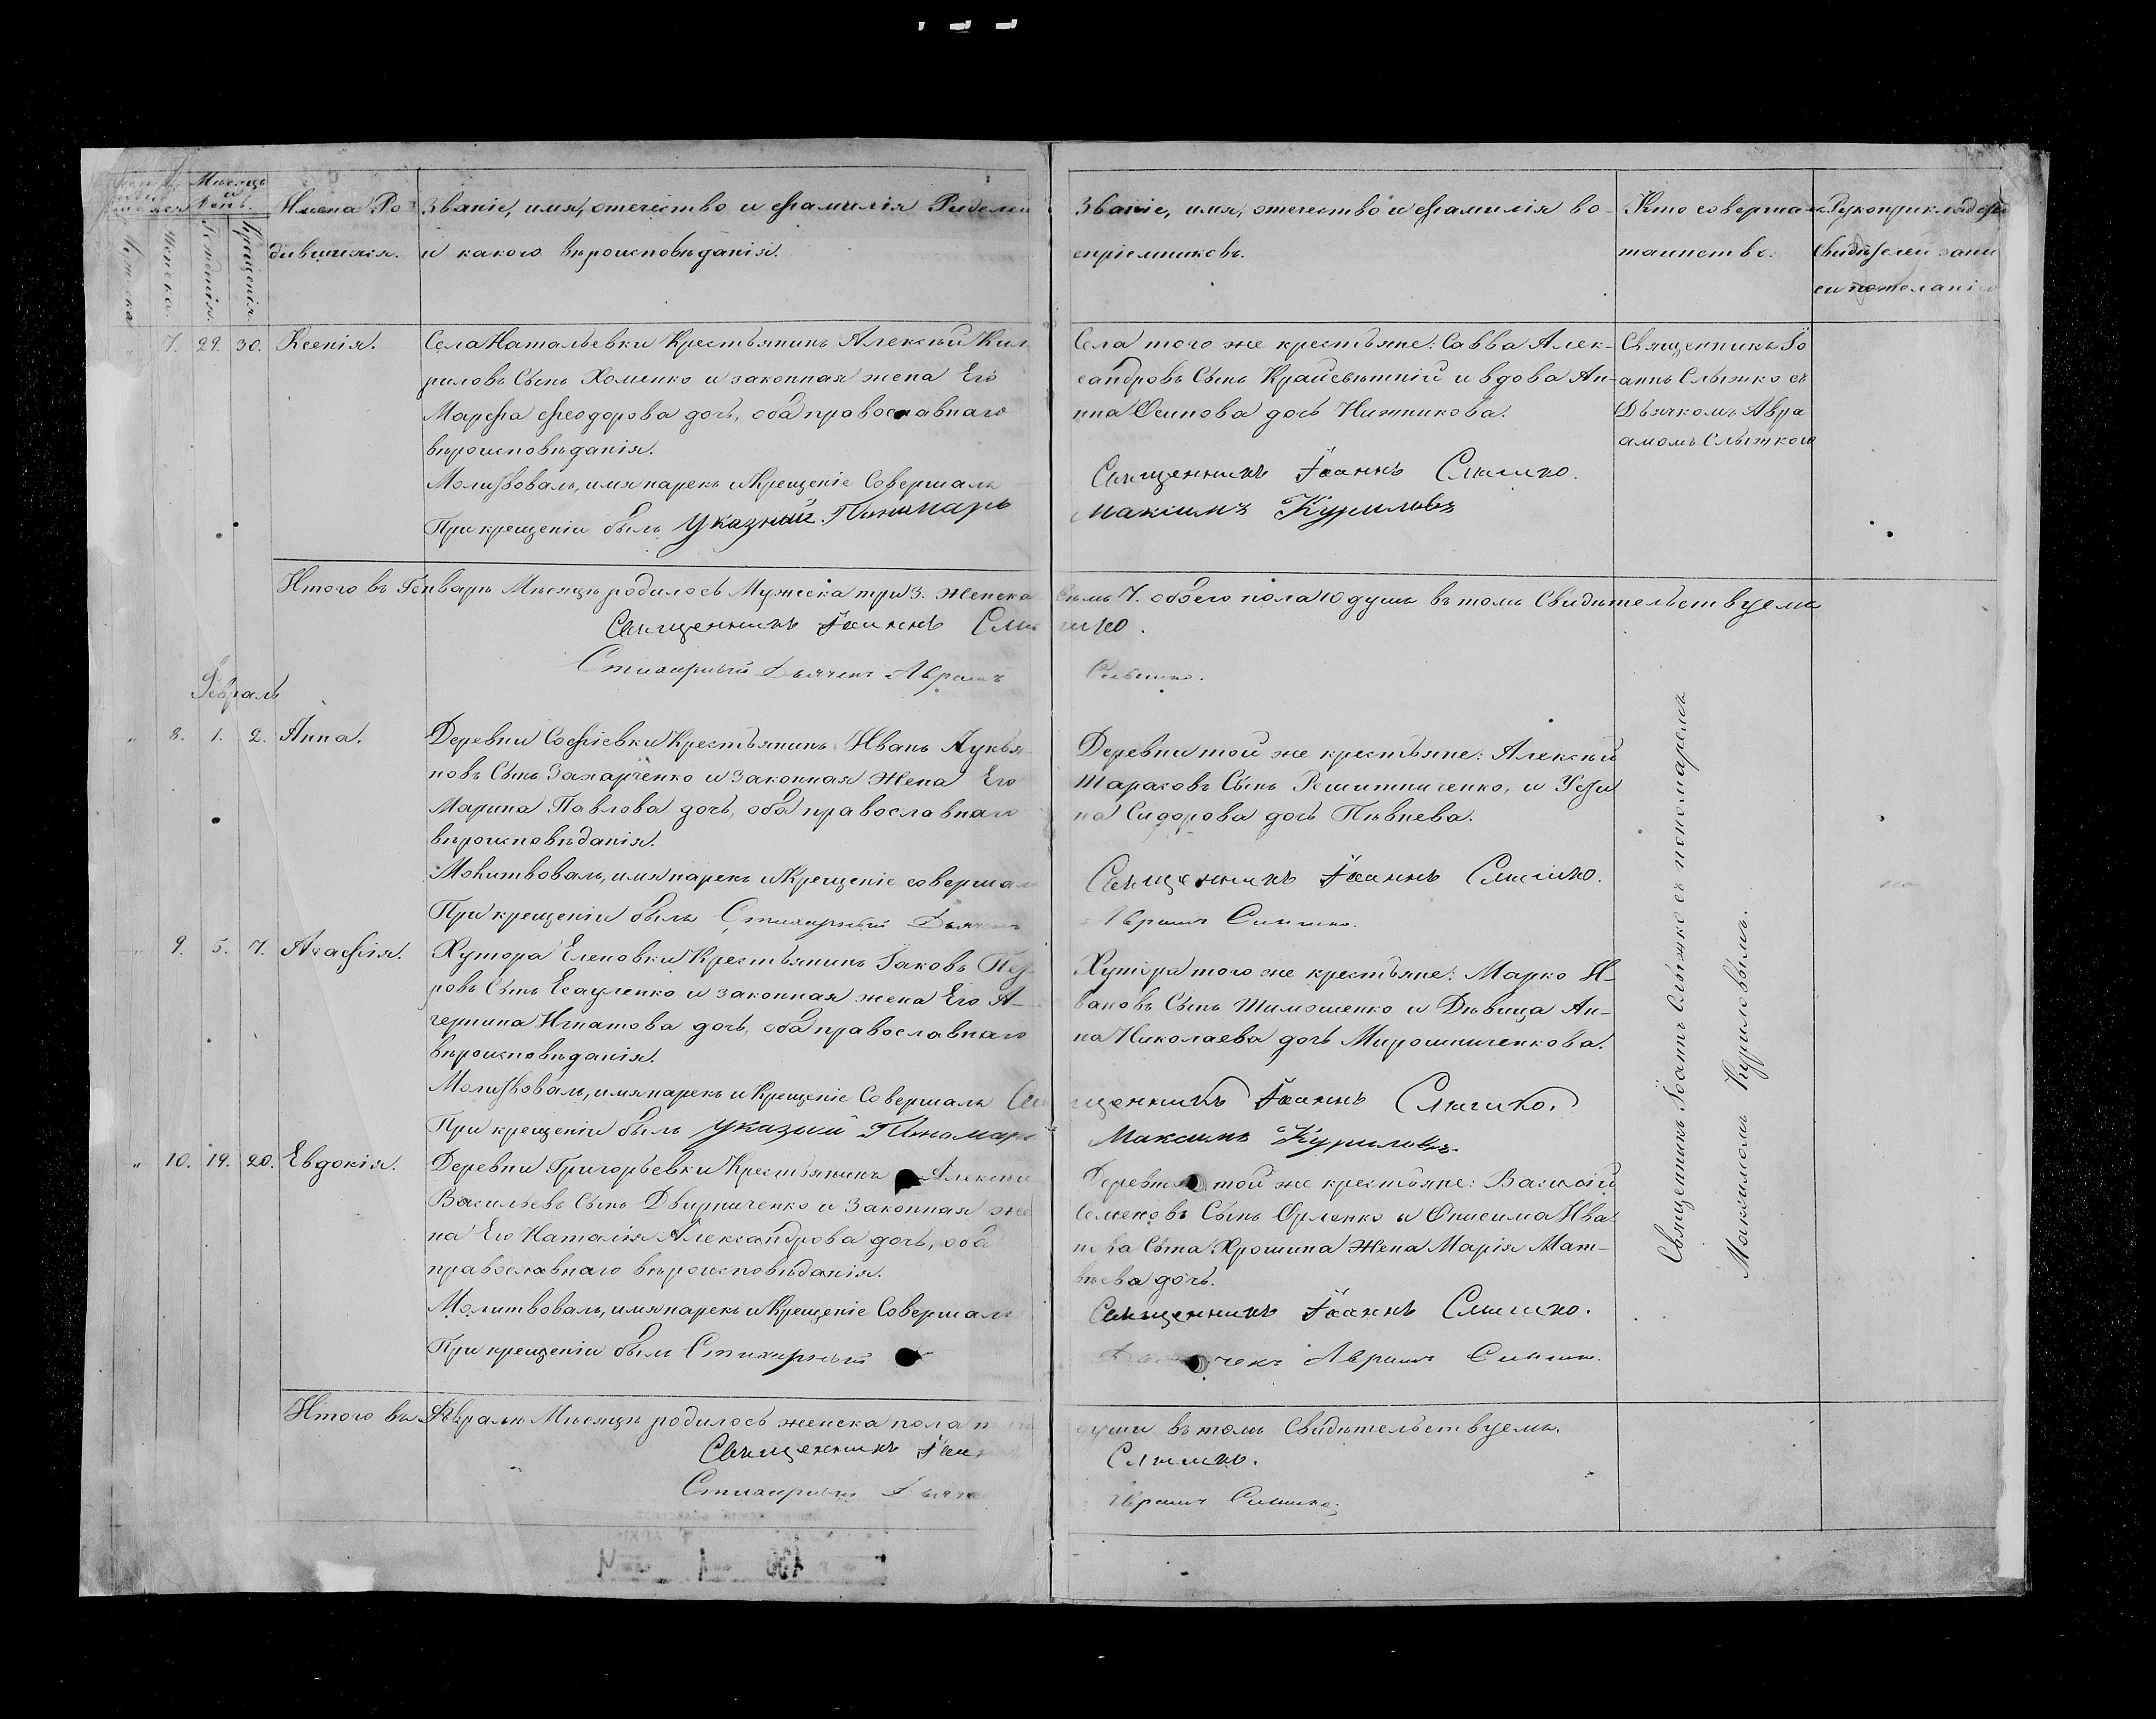 Мѣсяцъ
и
день.
Женска.
Рожденія.
Крещенія.
Имена Ро-
дившихся.
Званіе, имя, отечество и фамилія Родителей
и какого вѣроисповѣданія.
Званіе, имя, отечество и фамилія во-
спріемниковъ.
Кто совершалъ
таинство.
Рукоприкладство
свидѣтелей запи
си по желанію
7. 29. 30. Ксенія.
Села Натальевки Крестьянинъ Алексѣй Кил
риловъ Сынъ Хоменко и законная жена Его
Марфа Феодорова дочь, оба православнаго
вѣроисповѣданія.
Молитвовалъ, имя нарекъ и Крещеніе Совершалъ
При крещеніи былъ Указный Пономарь
Села того же крестьяне: Савва Алек-
сандровъ Сынъ Крайсвѣтній и вдова Ан-
нна Осипова дочь Нижникова.
Священникъ Іоаннъ Слышко.
Максимъ Куриловъ
Священникъ Іо
аннъ Слышко съ
Дьячкомъ Авра
амомъ Слышкою
Итого въ Генварѣ Мѣсяцѣ родилось Мужеска три 3. женска семь 7. обоего пола 10 душъ въ томъ Свидѣтельствуемъ
Священникъ Іоаннъ Слышко.
Стихарный Дьячекъ Авраамъ Слышко.
Февраль
8. 1. 2. Анна.
Деревни Софіевки Крестьянинъ Иванъ Лукья
новъ Сынъ Захарченко и Законная Жена Его
Марина Павлова дочь, оба православнаго
вѣроисповѣданія.
Молитвовалъ, имя нарекъ и Крещеніе совершалъ
При крещеніи былъ Стихарный Дьячекъ
Деревни той же крестьяне: Алексѣй
Тарасовъ Сынъ Решитниченко, и Усти
на Сидорова дочь Пѣвнева.
Священникъ Іоаннъ Слышко.
Авраамъ Слышко.
9. 5. 7. Агафія.
Хутора Еленовки Крестьянинъ Іаковъ Пет
ровъ Сынъ Есауленко и законная жена Его А-
герпина Игнатова дочь, оба православнаго
вѣроисповѣданія.
Молитвовалъ, имя нарекъ и Крещеніе Совершалъ Свя
При крещеніи былъ Указный Пономарь
Хутора того же крестьяне: Марко И-
вановъ Сынъ Тимошенко и Дѣвица Ан-
на Николаева дочь Мирошниченкова.
щенникъ Іоаннъ Слышко.
Максимъ Куриловъ.
10. 19. 20. Евдокія.
Деревни Григорьевки Крестьянинъ Алексѣй
Васильевъ Сынъ Двирниченко и Законная же
на Его Наталія Александрова дочь, оба
православнаго вѣроисповѣданія.
Молитвовалъ, имя нарекъ и Крещеніе Совершалъ
При крещеніи былъ Стихарный
Деревни той же крестьяне: Василій
Семеновъ Сынъ Орленко и Онисима Ива
нова Сына Хрошина Жена Марія Мат-
вѣева дочь.
Священникъ Іоаннъ Слышко.
Дьячекъ Авраамъ Слышко.
Священникъ Іоаннъ Слышко съ пономаремъ
Максимомъ Куриловымъ.
Итого въ Февралѣ Мѣсяцѣ родилось женска пола три души въ томъ Свидѣтельствуемъ.
Священникъ Іоаннъ Слышко.
Стихарный Дьячекъ Авраамъ Слышко.